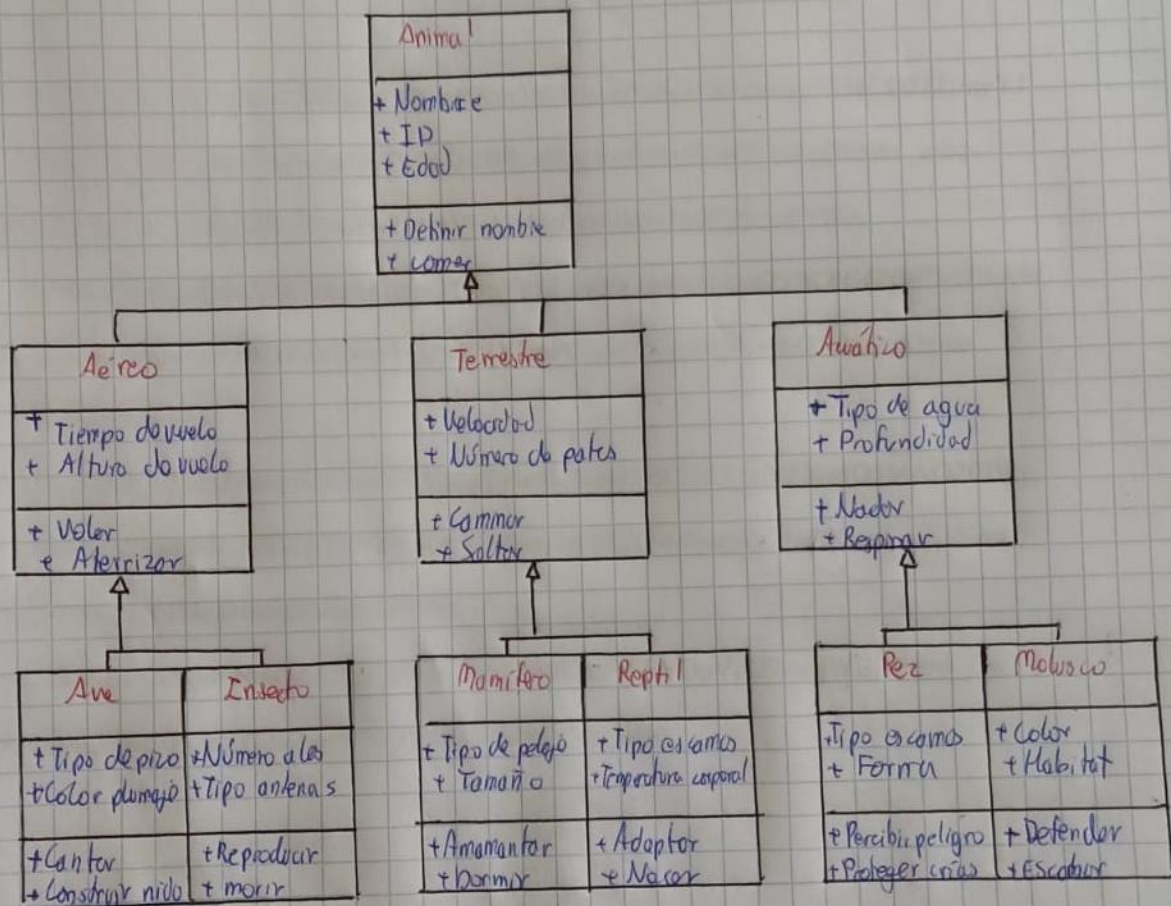 Animal
+ Nombre
+ ID
+ Edad
+ Definir nombre
+ comer
Aéreo
+ Tiempo de vuelo
+ Altura de vuelo
+ Volar
+ Aterrizar
Terrestre
+ Velocidad
+ Número de patas
+ Caminar
+ Saltar
Acuático
+ Tipo de agua
+ Profundidad
+ Nadar
+ Respirar
Ave
+ Tipo de pico
+ Color plumaje
+ Cantar
+ Construir nido
Insecto
+ Número alas
+ Tipo antenas
+ Reproducir
+ morir
Mamífero
+ Tipo de pelaje
+ Tamaño
+ Amamantar
+ Dormir
Reptil
+ Tipo escamas
+ Temperatura corporal
+ Adaptar
+ Nacer
Pez
+ Tipo escamas
+ Forma
+ Percibir peligro
+ Proteger crías
Molusco
+ Color
+ Habitat
+ Defender